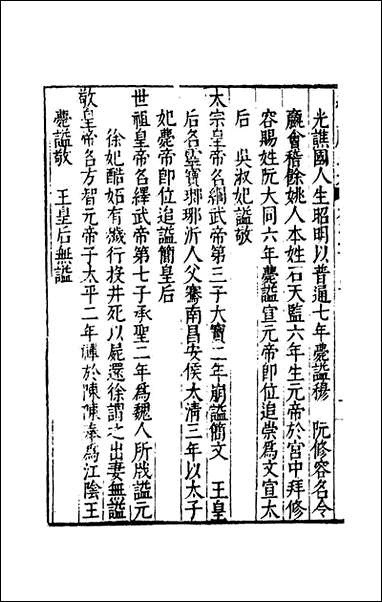 光譙國人生昭明以普通七年薨謚穆　阮修容名令
嬴會稽餘姚人本姓石天監六年生元帝於宮中拜修
容賜姓阮大同六年薨謚宣元帝即位追崇爲文宣太
后　吳淑妃謚敬
太宗皇帝名綱武帝第三子大寶二年崩謚簡文　王皇
后名靈賓瑯琊沂人父騫南昌安侯太清三年以太子
妃薨帝即位追謚簡皇后
世祖皇帝名繹武帝第七子承聖二年爲魏人所戕謚元
徐妃酷妬有穢行投井死以屍還徐謂之出妻無謚
敬皇帝名方智元帝子太平二年禪於陳陳奉爲江陰王
薨謚敬　王皇后無謚